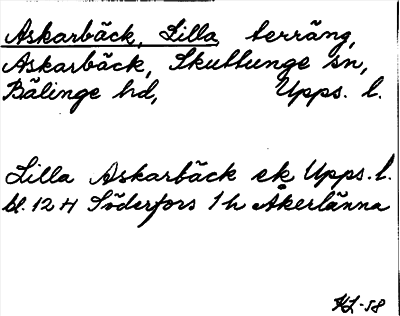 Askarbäck, Lilla terräng,
Askarbäck, Skuttunge sn,
Bälinge hd, Upps. l.
Lilla Askarbäck ek Upps. l.
bl. 12 H Söderfors 1 h Åkerlänna
HL-58